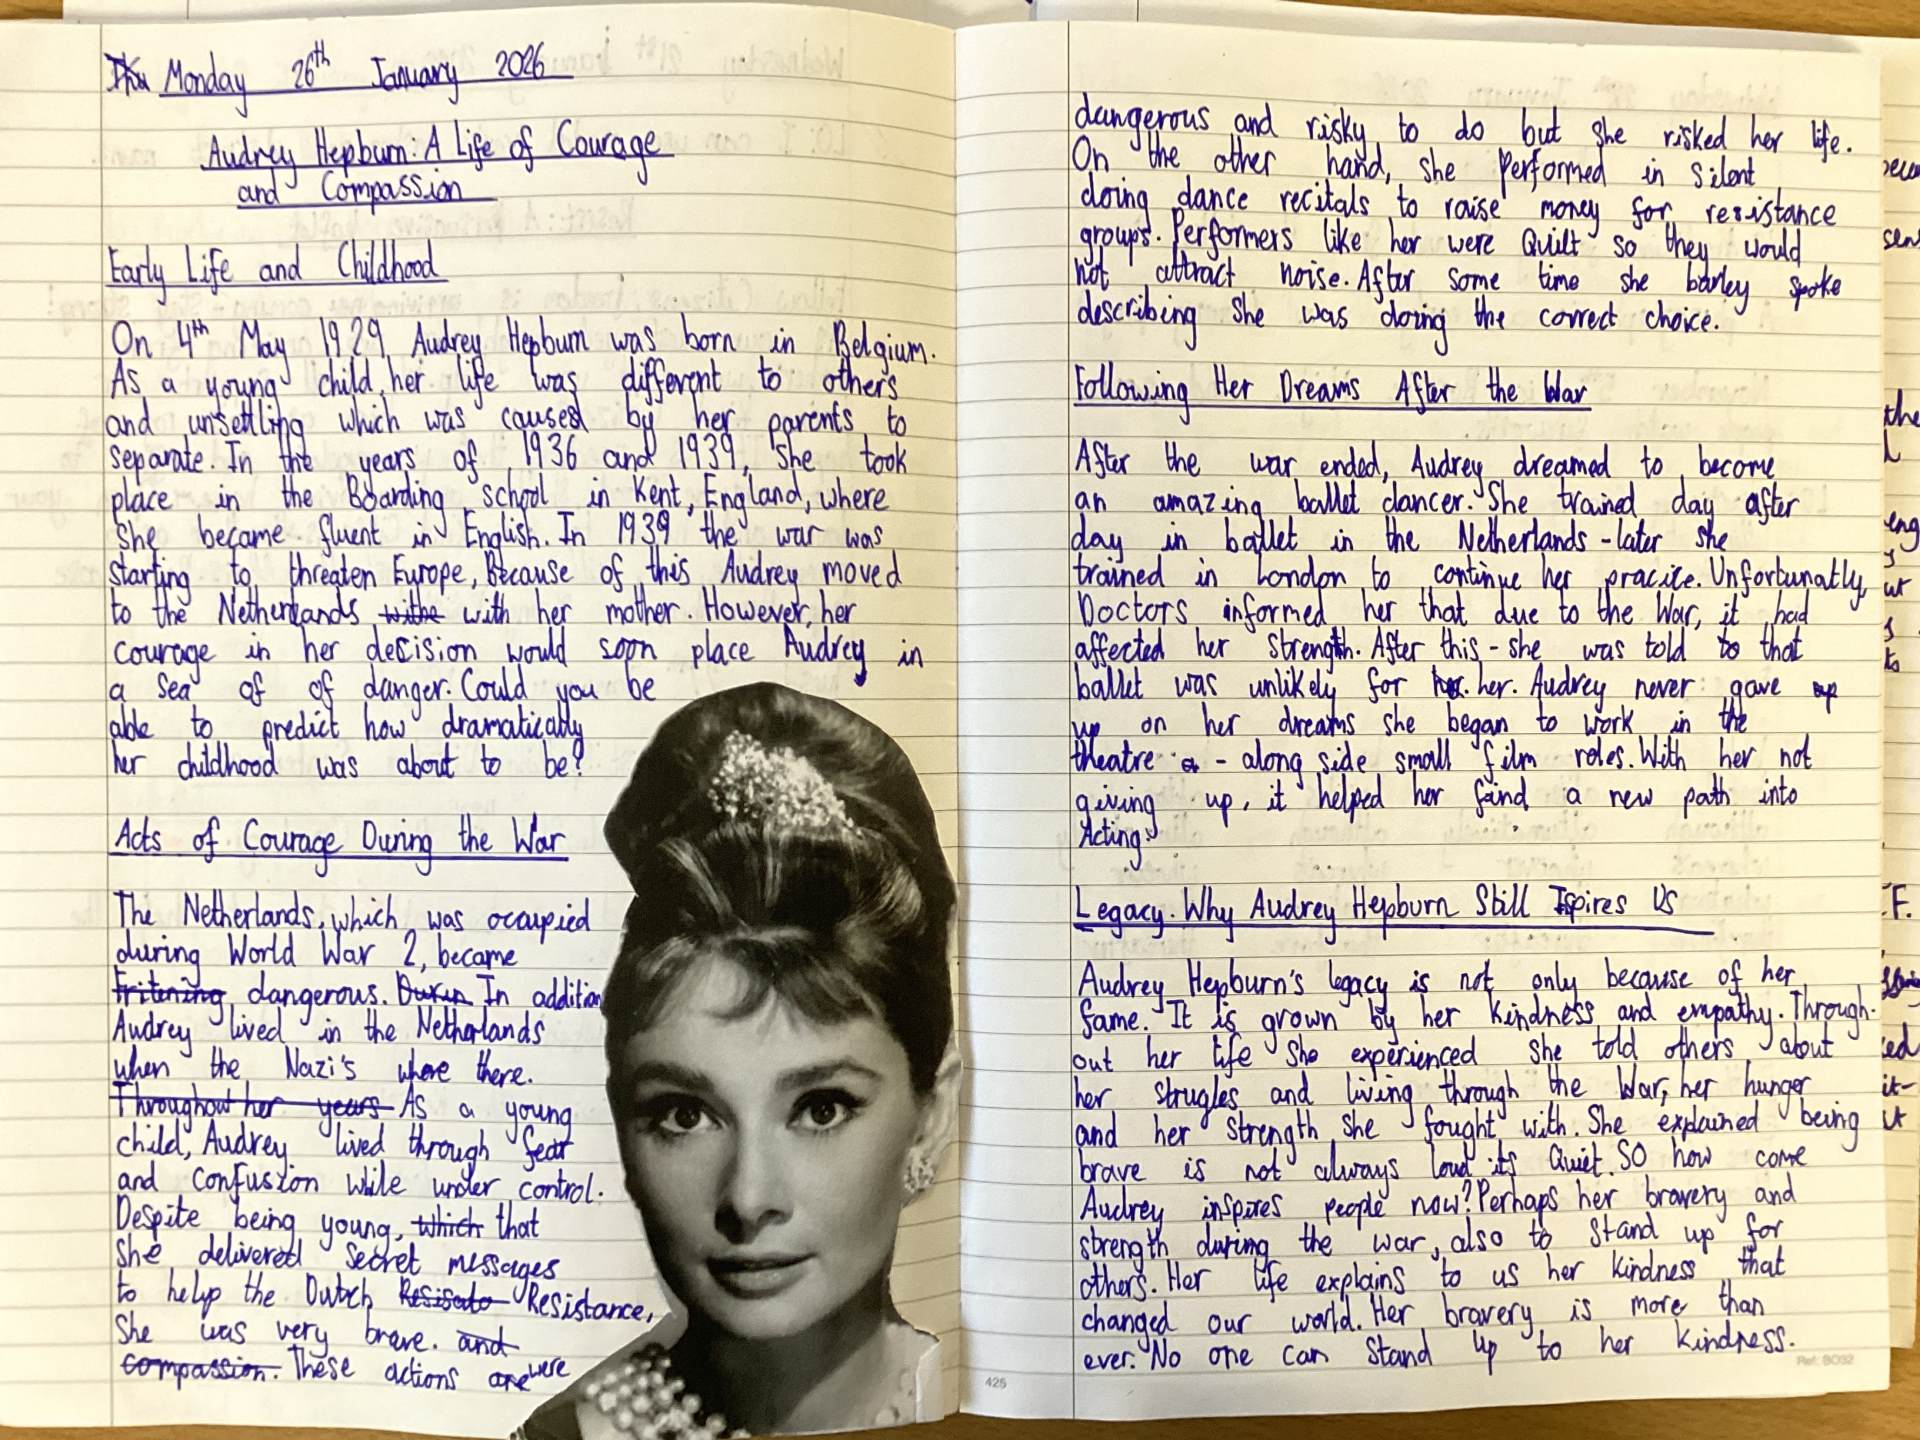 Monday 26th January 2026
Audrey Hepburn: A Life of Courage
and Compassion
Early Life and Childhood
On 4th May 1929, Audrey Hepburn was born in Belgium.
As a young child, her life was different to others
and unsettling which was caused by her parents to
separate. In the years of 1936 and 1939, she took
place in the Boarding school in Kent, England, where
She became fluent in English. In 1939 the war was
starting to threaten Europe, Because of this Audrey moved
to the Netherlands withe with her mother. However, her
courage in her decision would soon place Audrey in
a sea of of danger. Could you be
able to predict how dramatically
her childhood was about to be?
Acts of Courage During the War
The Netherlands, which was occupied
during World War 2, became
Fritening dangerous. In addition
Audrey lived in the Netherlands
when the Nazi's where there.
Throughout her years As a young
child, Audrey lived through fear
and confusion while under control.
Despite being young, which that
She delivered secret messages
to help the Dutch Resistance,
She was very brave. and
compassion. These actions are were
dangerous and risky to do but she risked her life.
On the other hand, she Performed in Silent
doing dance recitals to raise money for resistance
groups. Performers like her were Quilt so they would
not attract noise. After some time she barley spoke
describing She was doing the correct choice.
Following Her Dreams After the War
After the war ended, Audrey dreamed to become
an amazing ballet dancer. She trained day after
day in ballet in the Netherlands - later she
trained in London to continue her pracice. Unfortunatly,
Doctors informed her that due to the War, it had
affected her Strength. After this - she was told to that
ballet was unlikely for her. her. Audrey never gave up
up on her dreams she began to work in the
theatre - along side small film roles. With her not
giving up, it helped her find a new path into
Acting.
Legacy. Why Audrey Hepburn Still Ispires Us
Audrey Hepburn's legacy is not only because of her
fame. It is grown by her kindness and empathy. Through-
out her life She experienced She told others about
her strugles and living through the War, her hunger
and her strength she fought with. She explained being
brave is not always loud its Quiet. SO how come
Audrey inspires people now? Perhaps her bravery and
strength during the war, also to Stand up for
others. Her life explains to us her kindness that
changed our world. Her bravery is more than
ever. No one can Stand Up to her kindness.
425
Ref: BO32